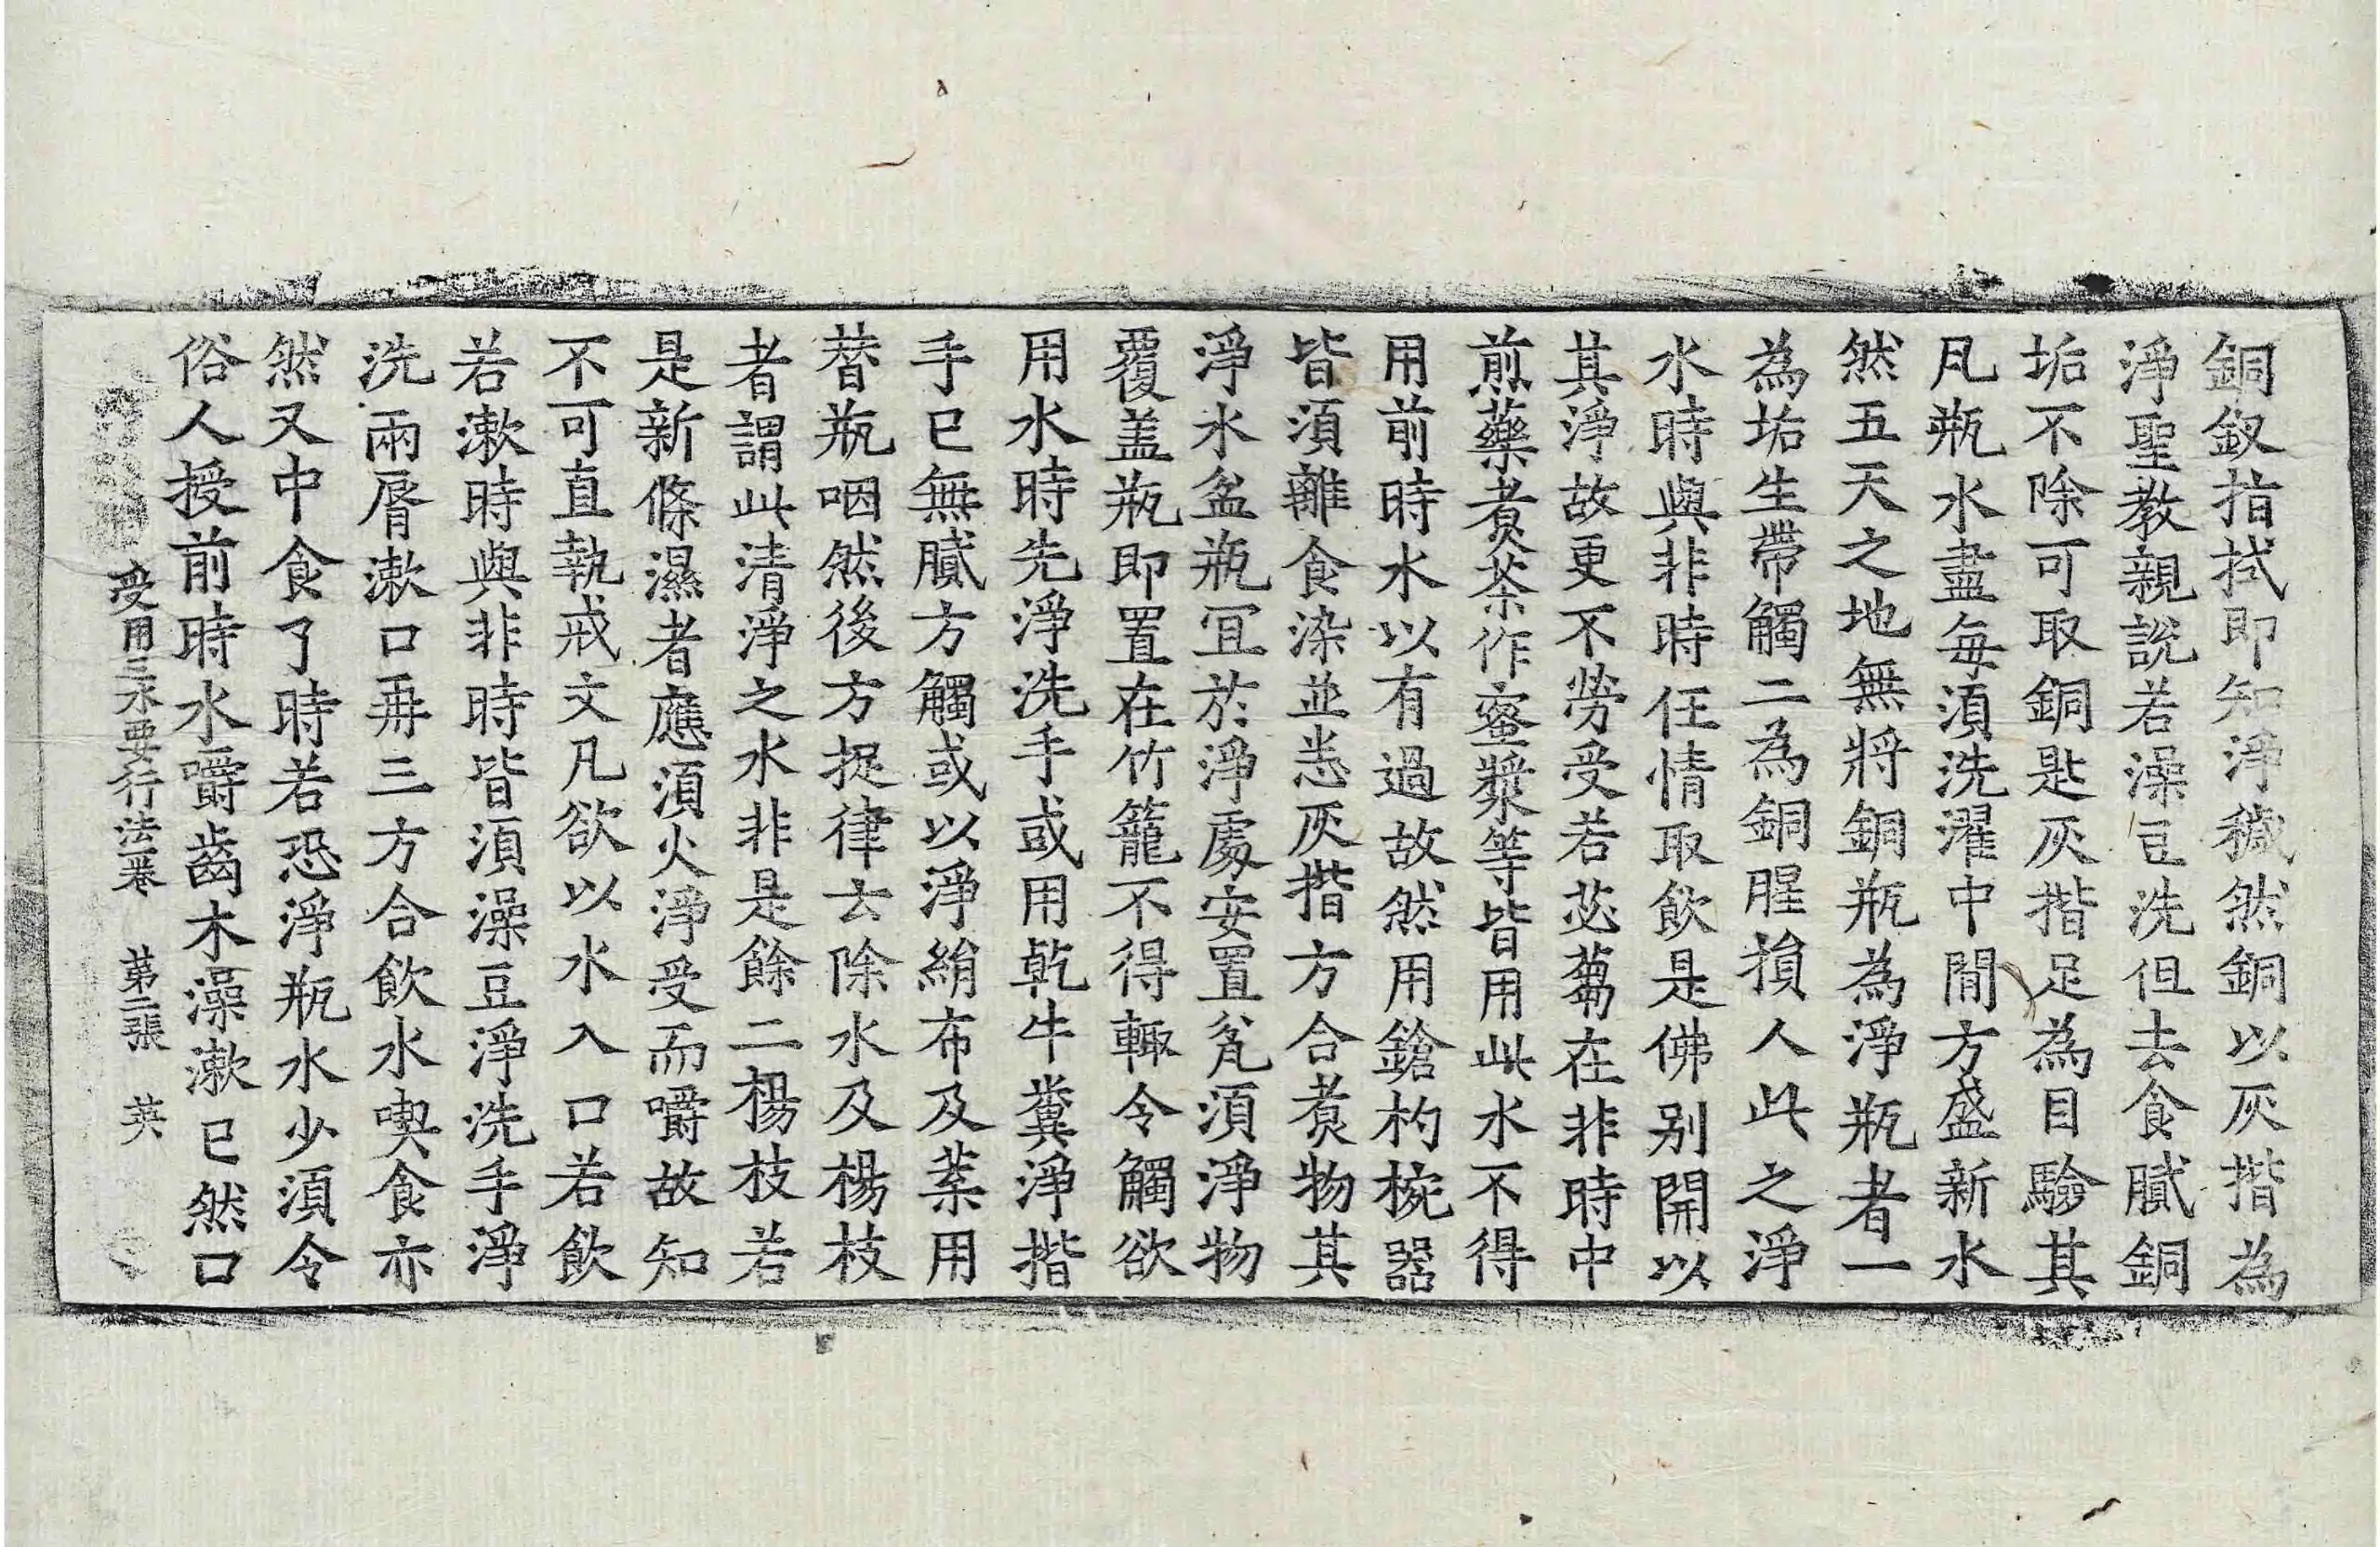 銅釵指拭即知淨穢然銅以灰揩為
淨聖教親說若澡豆洗但去食膩銅
垢不除可取銅匙灰揩足為目驗其
凡瓶水盡每須洗濯中間方盛新水
然五天之地無將銅瓶為淨瓶者一
為垢生帶觸二為銅腥損人此之淨
水時與非時任情取飲是佛別開以
其淨故更不勞受若苾蒭在非時中
煎藥煮茶作蜜漿等皆用此水不得
用前時水以有過故然用鎗杓椀器
皆須離食染並悉灰揩方合煮物其
淨水盆瓶冝於淨處安置瓮須淨物
覆盖瓶即置在竹籠不得輙令觸欲
用水時先淨洗手或用乾牛糞淨揩
手已無膩方觸或以淨絹布及葉用
替瓶咽然後方捉律去除水及楊枝
者謂此清淨之水非是餘二楊枝若
是新條濕者應須火淨受而嚼故知
不可直執戒文凡欲以水入口若飲
若漱時與非時皆須澡豆淨洗手淨
洗兩脣漱口再三方合飲水喫食亦
然又中食了時若恐淨瓶水少須令
俗人授前時水嚼齒木澡漱已然口
受用三水要行法卷 第二張 英